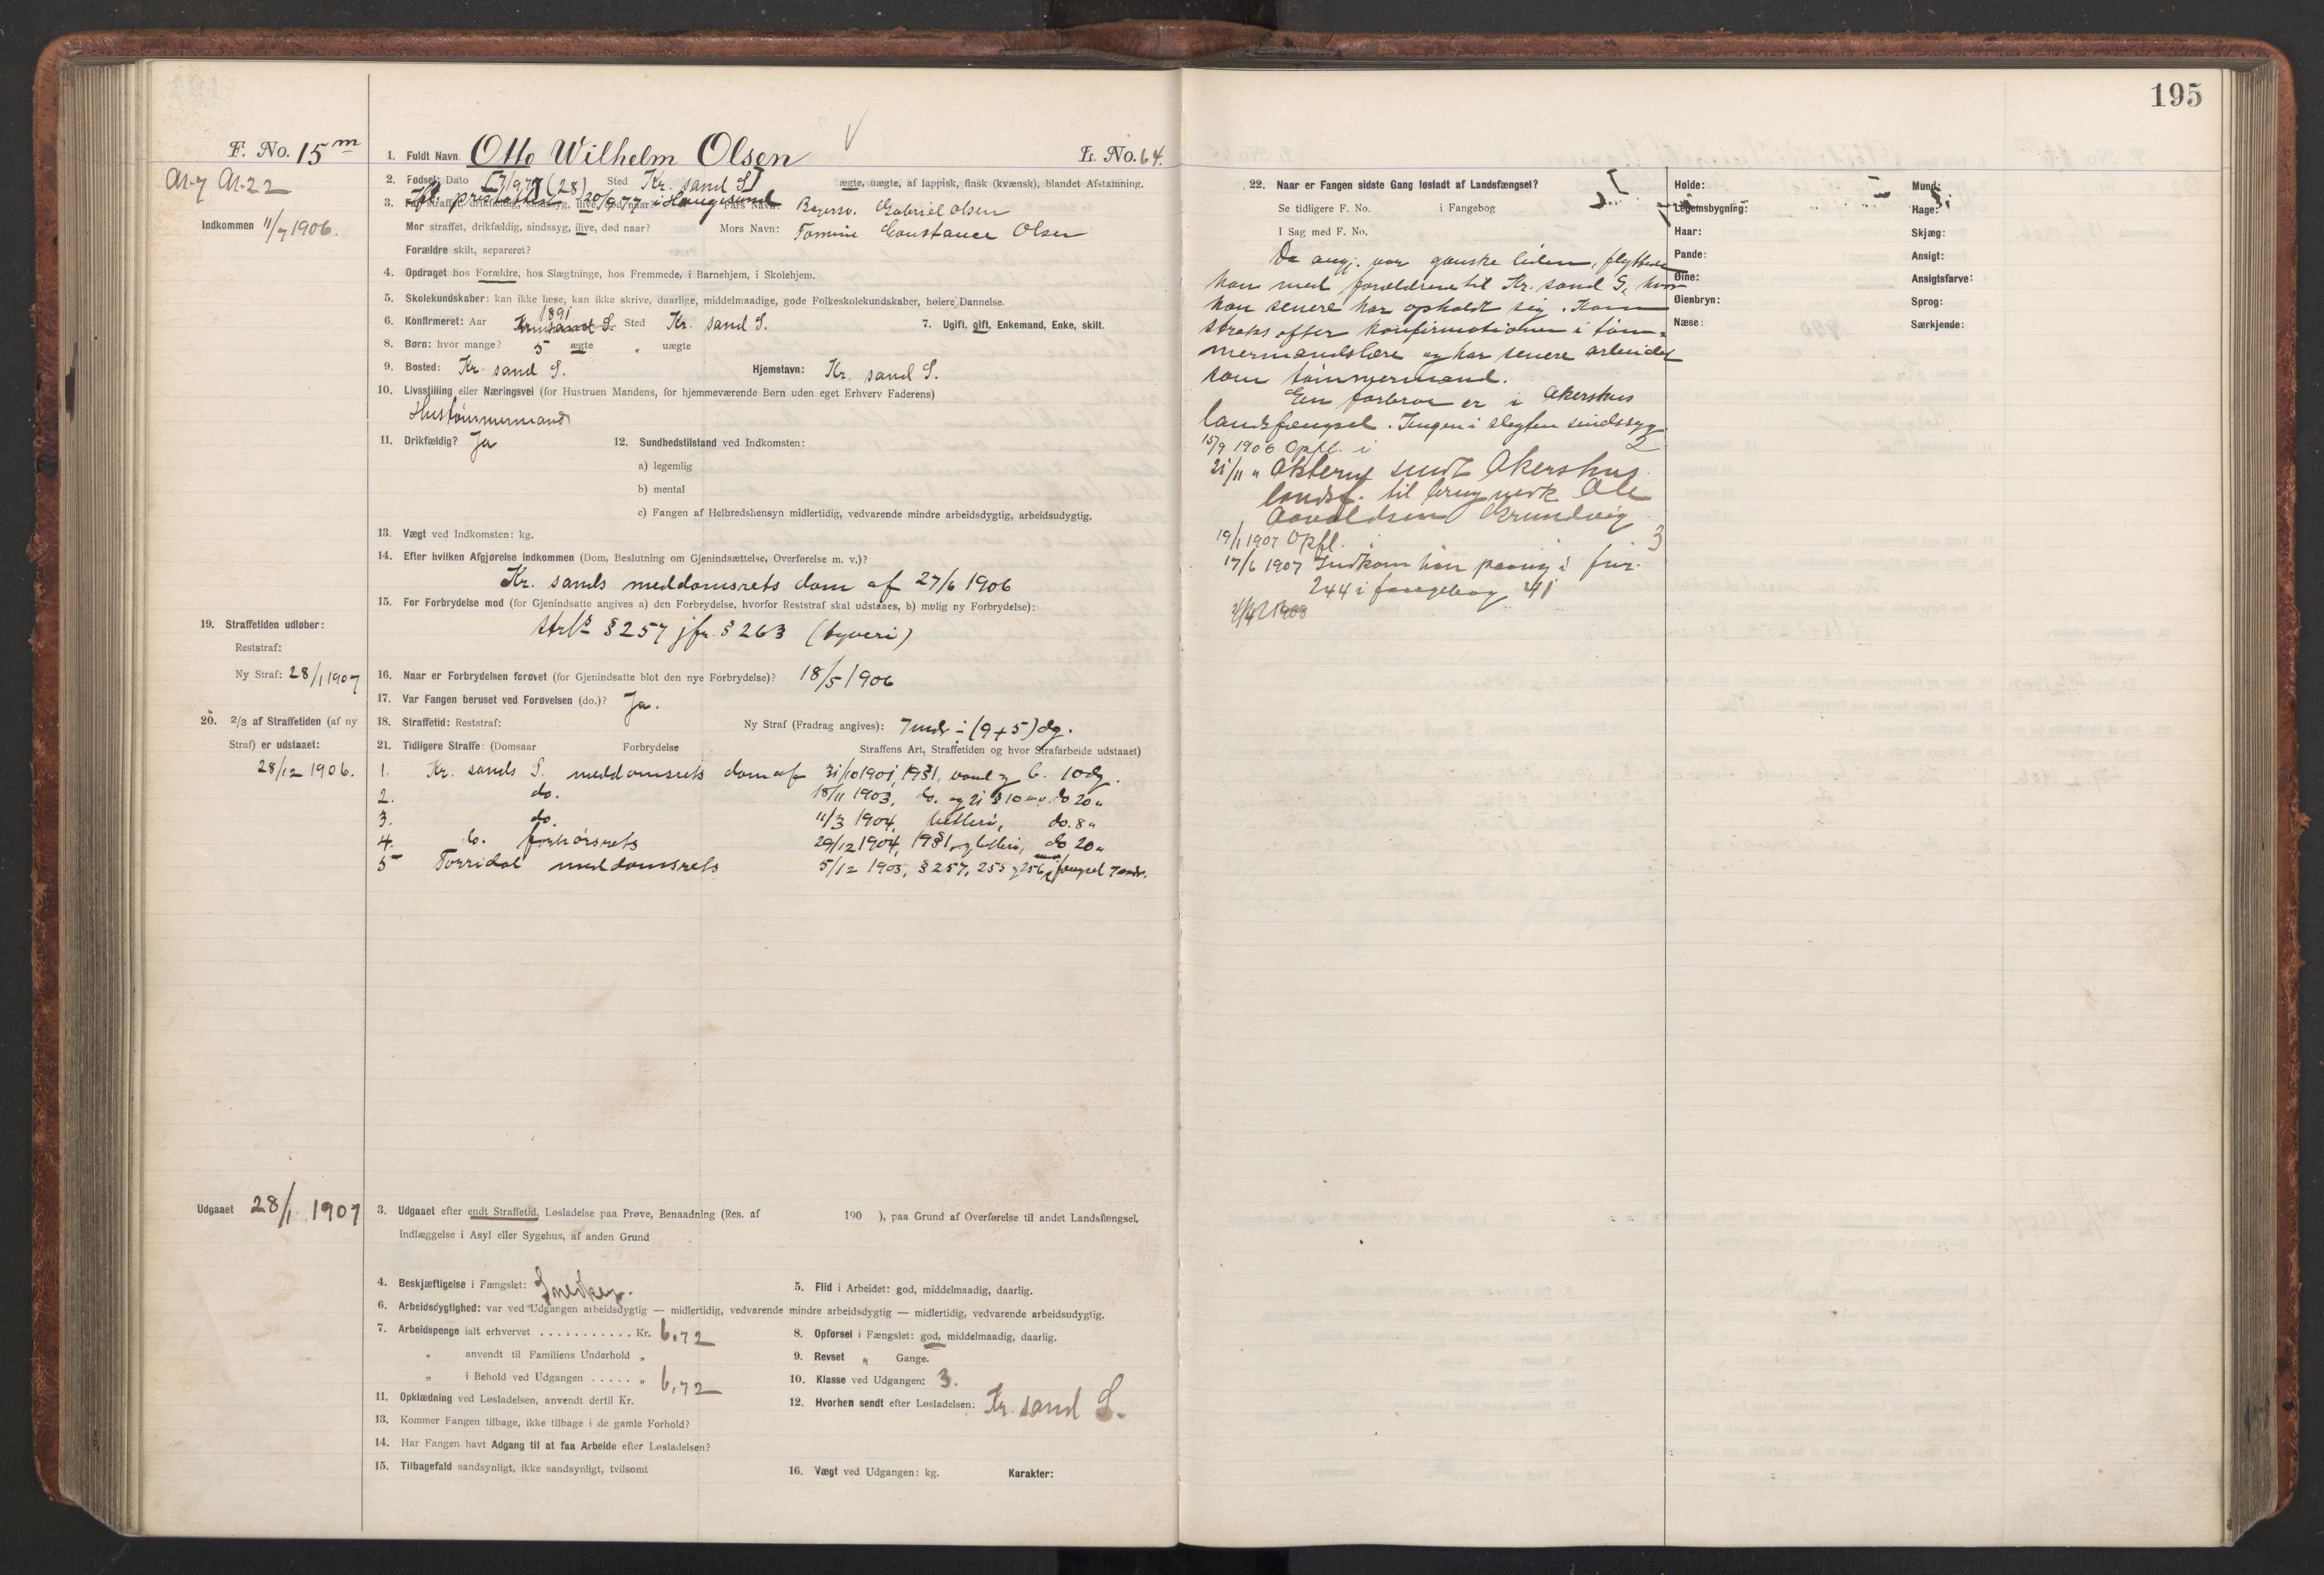 195
F. No. 15 m
1. Fuldt Navn. Otto Wilhelm Olsen
L. No. 64.
2. Fødsel: Dato (28) Sted Kr. sand S] ægte, uægte, af lappisk, finsk (kvænsk), blandet Afstamning.
Ifl. prestattest 20/9 77 i Haugesund
3. Far straffet, drikfældig, sindssyg, ilive, død naar? Fars Navn: Gabriel Olsen
Indkommen 11/7 1906.
Mor straffet, drikfældig, sindssyg, ilive, død naar? Mors Navn: Tomine Constance Olsen
Forældre skilt, separeret?
4. Opdraget hos Forældre, hos Slægtninge, hos Fremmede, i Barnehjem, i Skolehjem.
5. Skolekundskaber: kan ikke læse, kan ikke skrive, daarlige, middelmaadige, gode Folkeskolekundskaber, høiere Dannelse.
6. Konfirmeret: Aar 1891 Sted Kr. sand S. 7. Ugift, gift, Enkemand, Enke, skilt.
8. Børn: hvor mange? 5 ægte " uægte
9. Bosted: Kr. sand S. Hjemstavn: Kr. sand S.
10. Livsstilling eller Næringsvei (for Hustruen Mandens, for hjemmeværende Børn uden eget Erhverv Faderens)
Hustømmermand
11. Drikfældig? Ja 12. Sundhedstilstand ved Indkomsten:
a) legemlig
b) mental
c) Fangen af Helbredshensyn midlertidig, vedvarende mindre arbeidsdygtig, arbeidsudygtig.
13. Vægt ved Indkomsten: kg.
14. Efter hvilken Afgjørelse indkommen (Dom, Beslutning om Gjenindsættelse, Overførelse m. v.)?
Kr. sands meddomsrets dom af 27/6 1906
15. For Forbrydelse mod (for Gjenindsatte angives a) den Forbrydelse, hvorfor Reststraf skal udstaaes, b) mulig ny Forbrydelse):
§ 257 jfr. § 263 (tyveri)
19. Straffetiden udløber:
Reststraf:
Ny Straf: 28/1 1907
16. Naar er Forbrydelsen forøvet (for Gjenindsatte blot den nye Forbrydelse)? 18/5 1906
17. Var Fangen beruset ved Forøvelsen (do.)? Ja.
20. 2/3 af Straffetiden (af ny
Straf) er udstaaet:
28/12 1906.
18. Straffetid: Reststraf: Ny Straf (Fradrag angives): 7 mdr ÷ (9+5) dg.
21. Tidligere Straffe: (Domsaar Forbrydelse Straffens Art, Straffetiden og hvor Strafarbeide udstaaet)
1. Kr. sands S. meddomsrets dom af 31/10 1901, vand og b. 10 dg.
2. do. 18/11 1903, do 20 "
3. do. 11/3 1904, betleri, do. 8 "
4. do. forhørsrets 29/12 1904, do 20 "
5 Torridal meddomsrets 5/12 1905, § 257, 255 og 256, fængsel
Udgaaet 28/1 1907
3. Udgaaet efter endt Straffetid, Løsladelse paa Prøve, Benaadning (Res. af 190 ), paa Grund af Overførelse til andet Landsfængsel,
Indlæggelse i Asyl eller Sygehus, af anden Grund
4. Beskjæftigelse i Fængslet: Snedker. 5. Flid i Arbeidet: god, middelmaadig, daarlig.
6. Arbeidsdygtighed: var ved Udgangen arbeidsdygtig — midlertidig, vedvarende mindre arbeidsdygtig — midlertidig, vedvarende arbeidsudygtig.
7. Arbeidspenge ialt erhvervet . . . . . . . . . . . Kr. 6,72 8. Opførsel i Fængslet: god, middelmaadig, daarlig.
" anvendt til Familiens Underhold " 9. Revset " Gange.
" i Behold ved Udgangen . . . . . " 6,72 10. Klasse ved Udgangen: 3.
11. Opklædning ved Løsladelsen, anvendt dertil Kr. 12. Hvorhen sendt efter Løsladelsen: Kr. sand S.
13. Kommer Fangen tilbage, ikke tilbage i de gamle Forhold?
14. Har Fangen havt Adgang til at faa Arbeide efter Løsladelsen?
15. Tilbagefald sandsynligt, ikke sandsynligt, tvilsomt 16. Vægt ved Udgangen: kg. Karakter:
22. Naar er Fangen sidste Gang løsladt af Landsfængsel?
Se tidligere F. No. i Fangebog
I Sag med F. No.
Da angj. var ganske liden, flyttede
han med forældrene til Kr. sand S, hvor
han senere har opholdt sig. Kom
straks efter konfirmationen i tøm-
mermandslære og har senere arbeidet
som tømmermand.
En farbror er i Akershus
landsfængsel. Ingen i slegten sindssyg.
15/9 1906 Opfl. i 2
21/11 " Akterne sendt Akershus
landsf. til brug vedk. Ole
Aavaldsen Grundvig
19/1 1907 Opfl. 3
17/6 1907 Indkom han paany i fnr.
244 i fangebog 41
Høide:
Legemsbygning:
Haar:
Pande:
Øine:
Øienbryn:
Næse:
Mund:
Hage:
Skjæg:
Ansigt:
Ansigtsfarve:
Sprog:
Særkjende: